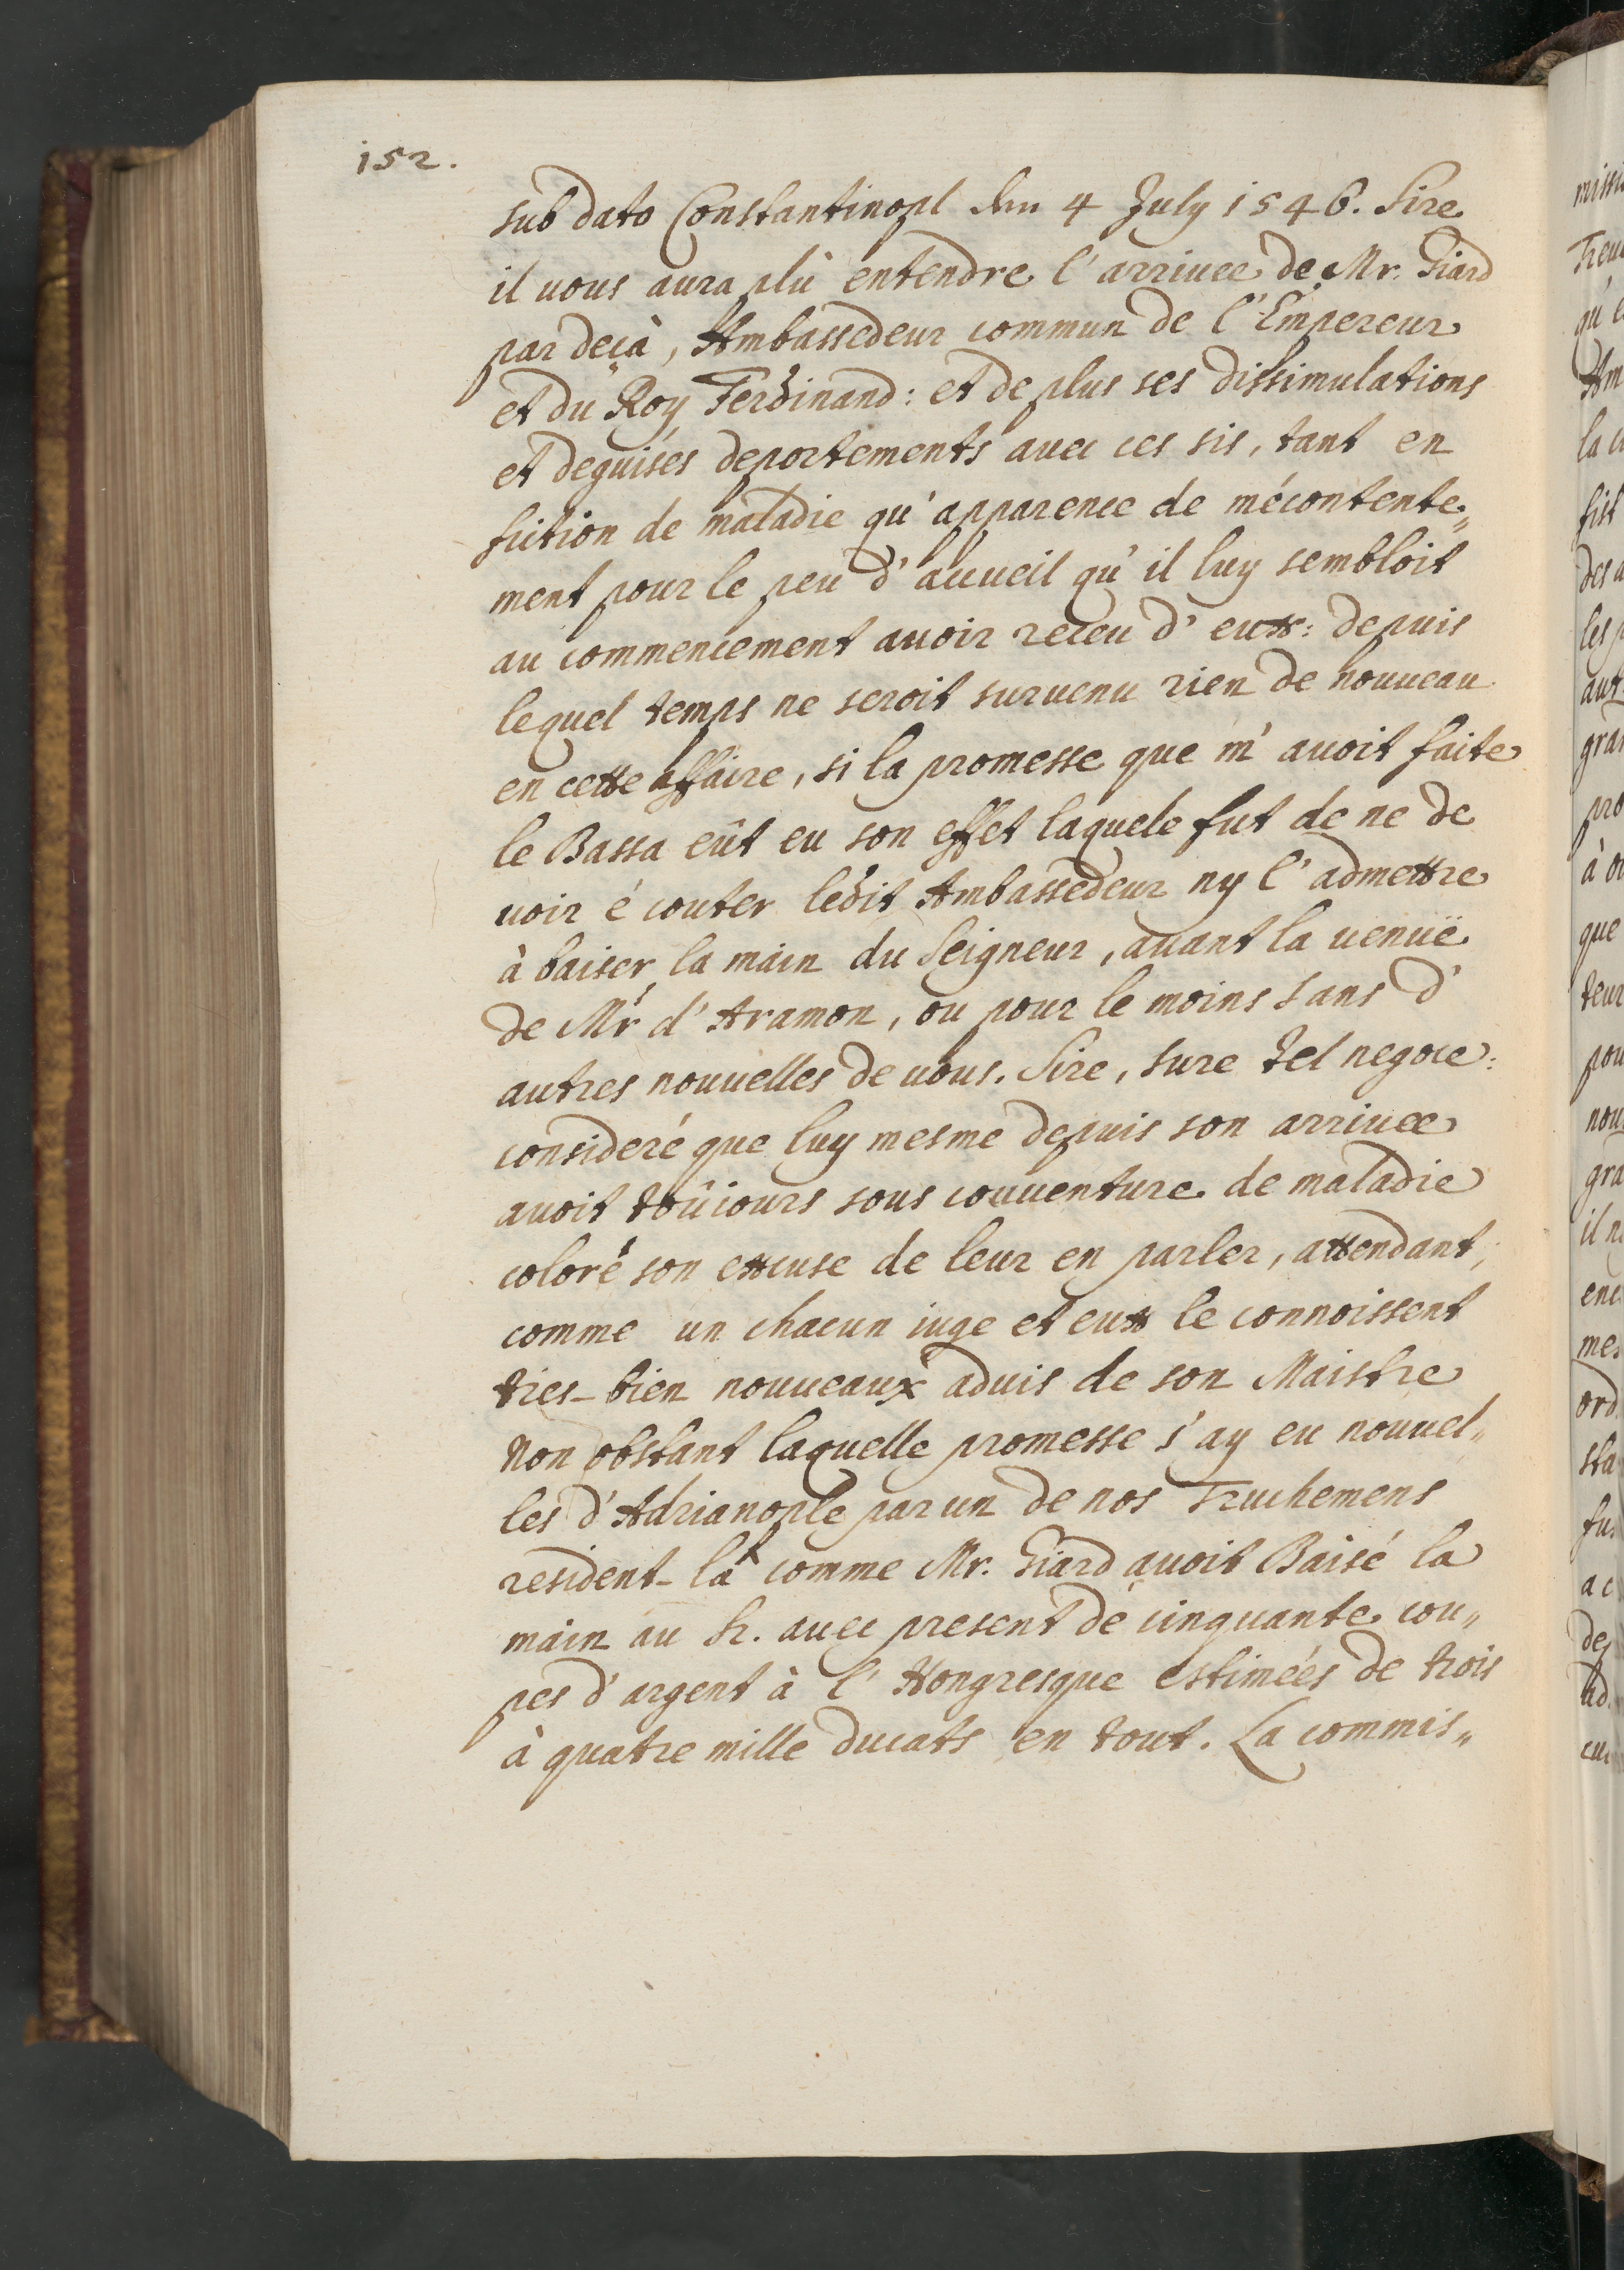 152.
sub dato Constantinopl den 4 July 1546. Sire
il uous aura plù entendre l'arriuee de Mr. Giard
par deçà, Ambassedeur commun de l'Empereur
et du Roy Ferdinand: et de plus ses dissimulations
et deguisés deportements auec ces sis, tant en
fiction de maladie qu'apparence de mécontente„
ment pour le peu d'accueil qu'il luy sembloit
au commencement auoir receu d'eux: depuis
lequel temps ne seroit suruenu rien de nouueau
en cette affaire, si la promesse que m'auoit faite
le Bassa eût eu son effet laquele fut de ne de
uoir é couter ledit Ambassedeur ny l'admettre
à baiser la main du Seigneur, auant la uenuë
de Mr d'Aramon, ou pour le moins sans d'
autres nouuelles de uous. Sire, sure tel negoce:
consideré que luy mesme depuis son arriuee
auoit toûiours sous couuenture de maladie
coloré son excuse de leur en parler, attendant,
comme un chacun iuge et eux le connoissent
tres-bien nouueaux aduis de son Maistre
Non obstant laquelle promesse j'ay eu nouuel„
les d'Adrianople par un de nos Truchemens
resident-là comme Mr. Giard auoit Baisé la
main au Sr. auec present de cinquante cou„
pes d'argent à l'Hongresque estimées de trois
à quatre mille ducats en tout. La commis„